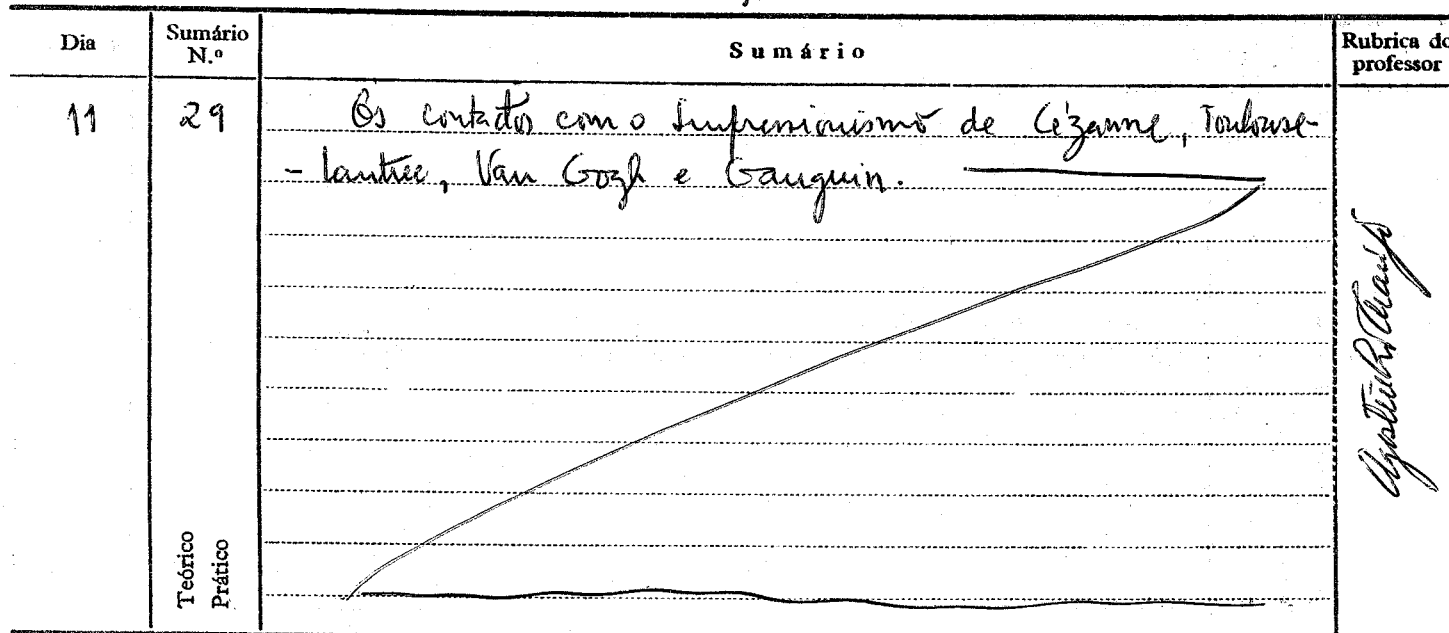 Dia
Sumário N.º
Sumário
Rubrica do professor
11
29
Os contactos com o Impressionismo de Cézanne, Toulouse-
-Lautrec, Van Gogh e Gauguin.
Teórico
Prático